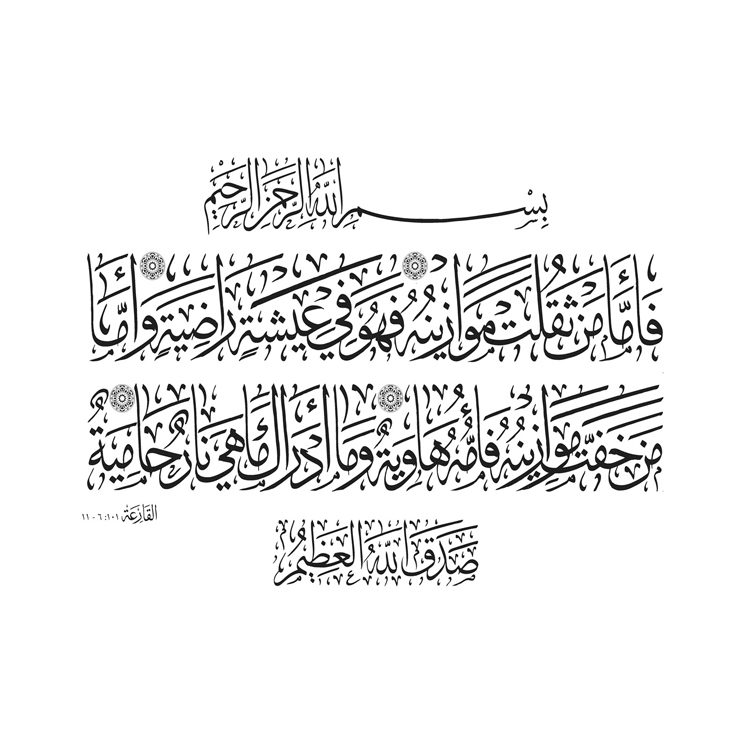 بِسْمِ اللَّهِ الرَّحْمَنِ الرَّحِيمِ
فَأَمَّا مَنْ ثَقُلَتْ مَوَازِينُهُ فَهُوَ فِي عِيشَةٍ رَاضِيَةٍ وَأَمَّا
مَنْ خَفَّتْ مَوَازِينُهُ فَأُمُّهُ هَاوِيَةٌ وَمَا أَدْرَاكَ مَا هِيَ نَارٌ حَامِيَةٌ
القَارِعَة ١٠١: ٦ - ١١
صَدَقَ اللَّهُ العَظِيمُ